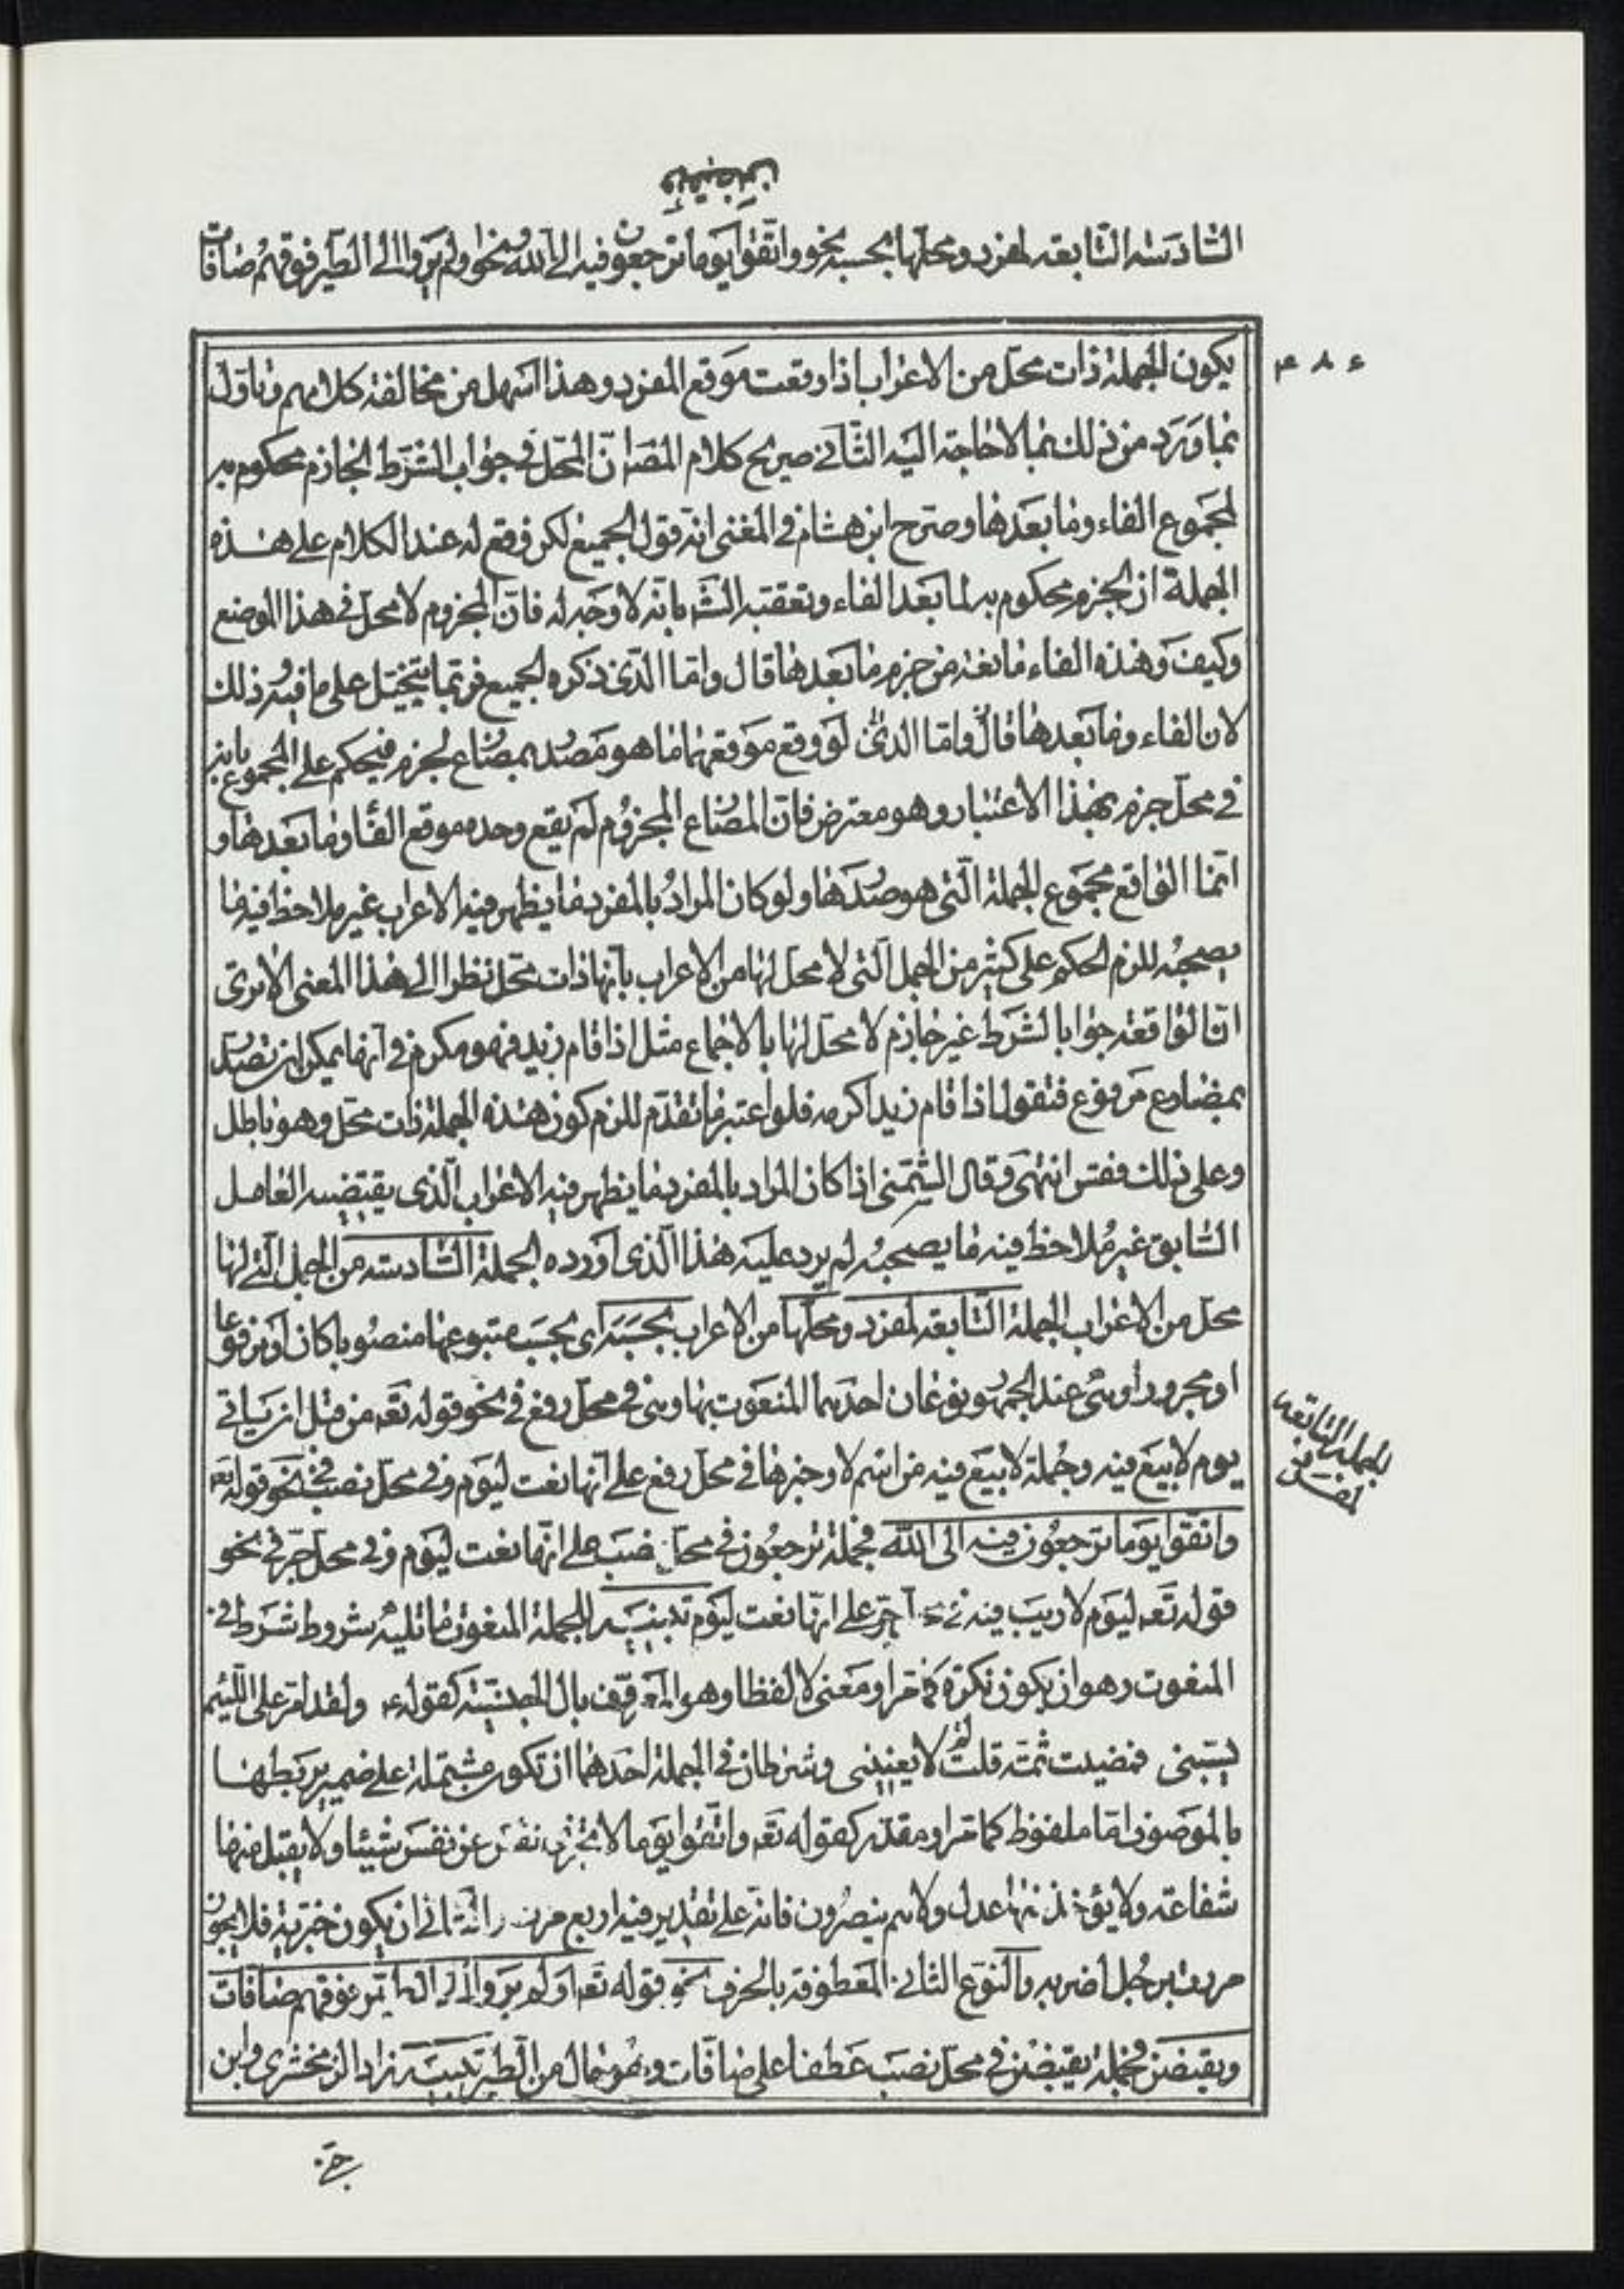 ويقبضن
السادسة التابعة لمفرد ومحلها بحسبه نحو واتقوا يوما ترجعون فيه الى الله ونحو اولم يروا الى الطير فوقهم صافات
يكون الجملة ذات محل من الاعراب اذا وقعت موقع المفرد وهذا اسهل من مخالفة كلامهم وتاول
ما ورد من ذلك بما لا حاجة اليه الثاني صريح كلام المص ان المحل في جواب الشرط الجازم محكوم به
لمجموع الفاء وما بعدها وصرح ابن هشام في المغني انه قول الجميع لكن وقع له عند الكلام على هذه
الجملة ان الجزم محكوم به لما بعد الفاء وتعقبه الش بانه لا وجه له فان المجزوم لا محل في هذا الموضع
وكيف وهذه الفاء مانعة من جزم ما بعدها قال واما الذي ذكره الجميع فربما يتخيل على ما فيه ذلك
لان الفاء وما بعدها قال واما الذي لو وقع موقعهما ما هو مصدر بمضارع لجزم فيحكم على المجموع بانه
في محل جزم بهذا الاعتبار وهو معترض فان المضارع المجزوم لم يقع وحده موقع الفا وما بعدها و
انما الواقع مجموع الجملة التي هو صدرها ولو كان المراد بالمفرد ما يظهر فيه الاعراب غير ملاحظ فيه ما
يصحبه للزم الحكم على كثير من الجمل التي لا محل لها من الاعراب بانها ذات محل نظرا الى هذا المعنى الا ترى
ان الواقعة جوابا لشرط غير جازم لا محل لها بالاجماع مثل اذا قام زيد فهو مكرم في انها يمكن ان تصدر
بمضارع مرفوع فتقول اذا قام زيد اكرمه فلو اعتبر ما تقدم للزم كون هذه الجملة ذات محل وهو باطل
وعلى ذلك فقس انتهى وقال الشمني اذا كان المراد بالمفرد ما يظهر فيه الاعراب الذي يقتضيه العامل
السابق غير ملاحظ فيه ما يصحبه لم يرد عليه هذا الذي اورده الجملة السادسة من الجمل التي لها
محل من الاعراب الجملة التابعة لمفرد ومحلها من الاعراب بحسبه اى بحسب متبوعها منصوبا كان او مرفوعا
او مجرورا وهي عند الجمهور نوعان احدهما المنعوت بها وهي في محل رفع في نحو قوله تع من قبل ان ياتي
يوم لا بيع فيه وجملة لا بيع فيه من اسم لا وخبرها في محل رفع على انها نعت ليوم وفي محل نصب في نحو قوله تع
واتقوا يوما ترجعون فيه الى الله فجملة ترجعون في محل نصب على انها نعت ليوم وفي محل جر في نحو
قوله تع ليوم لا ريب فيه في محل جر على انها نعت ليوم تنبيه للجملة المنعوت بها ثلثة شروط شرط في
المنعوت وهو ان يكون نكرة كما مر او معنى لا لفظا وهو المعرف بال الجنسية كقوله ولقد امر على اللئيم
يسبني فمضيت ثمت قلت لا يعنيني وشرطان في الجملة احدهما ان تكون مشتملة على ضمير يربطها
بالموصوف اما ملفوظ كما مر او مقدر كقوله تع واتقوا يوما لا تجزى نفس عن نفس شيئا ولا يقبل منها
شفاعة ولا يؤخذ منها عدل ولا هم ينصرون فانه على تقدير فيه اربع مرات الثاني ان يكون خبرية فلا يجوز
مررت برجل اضربه والنوع الثاني المعطوفة بالحرف نحو قوله تع اولم يروا الى الطير فوقهم صافات
ويقبضن فجملة يقبضن في محل نصب عطفا على صافات وهو حال من الطير تنبيه زاد الزمخشري وابن
٤٨٣
الجملة التابعة
لمفرد
جني